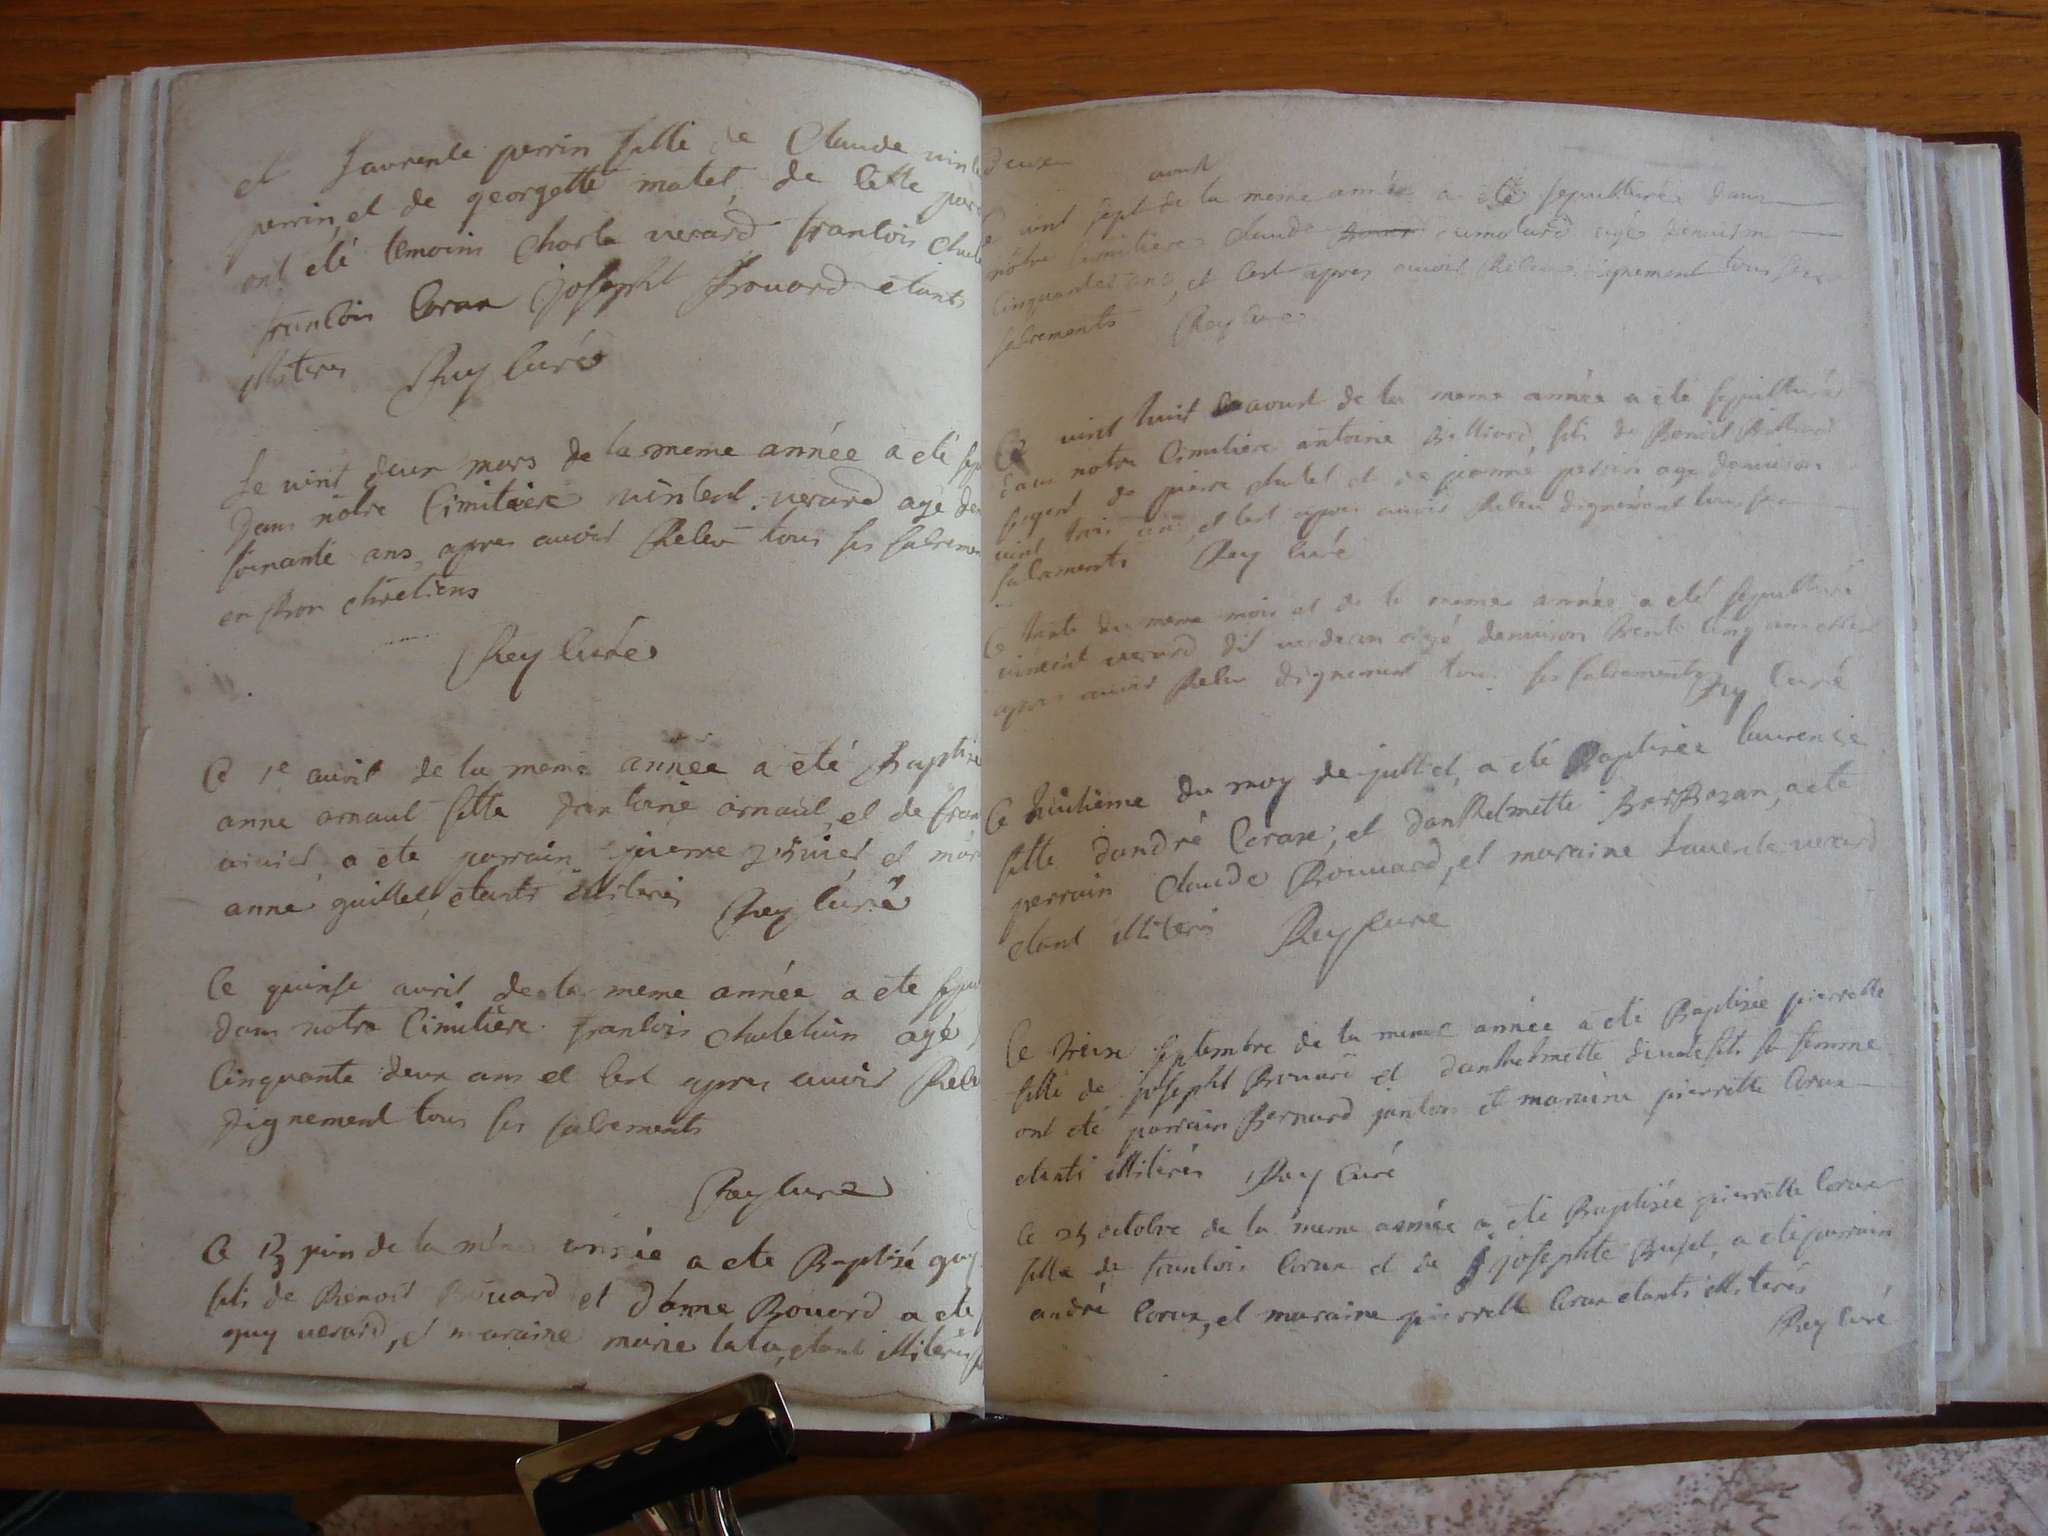 et laurence perrin fille de Claude vin
perrin, et de georgette matet de cette par
ont été temoins charle verard francois chat
francois Corax joseph Bouard etants
illiteres Rey Curé
Le vint deux mars de la meme année a eté sep
Dans notre Cimitiere vincent verard agé den
soixante ans, apres avoir Receu tous ses sacremen
en Bon chretiens
Rey Curé
Ce 1e avril de la meme année a eté Baptisé
anne arnaul fille dantoine arnaul, et de fran
a ete parrain pierre et mar
anne guillet, etants illiteres Rey Curé
Ce quinse avril de la meme année a ete sepul
dans notre Cimitiere francois chatelain agé
Cinquante deux ans et cest apres avoir Receu
dignement tous ses sacrements
Rey Curé
Ce 13 juin de la meme année a ete Baptisé guy
fils de Benoit Bouard et d'anne Bouard a ete
guy verard, et maraine marie lata, etant illiteres
deux
aoust
Ce vint sept de la meme année a été sepulturé dans
nôtre Cimitiere claude agé denviron
Cinquantes ans, et cest apres avoir Receu dignement tous ses
sacrements Rey Curé
Ce vint huit aoust de la meme année a eté sepulturé
dans notre Cimitiere antoine Billiard fils de Benoit Billiard
de pierre chatel et de jeanne perrin age denviron
vint trois ans et cest apres avoir Receu dignement tous ses
sacrements Rey Curé
Ce trente du meme mois et de la meme année a eté sepulturé
vincent verard dit agé denviron trente cinq ans et cest
apres avoir Receu dignement tous ses sacrements Rey Curé
Ce huitieme du moy de juillet, a eté Baptisée laurence
fille dandré Corax, et danthelmette BarBozan, a ete
perrain claude Bouvard, et maraine laurence verard
etant illiteres Rey Cure
Ce treise septembre de la meme année a eté Baptisée pierrette
fille de joseph Bouard et danthelmette sa femme
ont eté parrain Bernard et maraine pierrette Corax
etants illiterés Rey Curé
Ce 25 octobre de la meme année a eté Baptisée pierrette Corax
fille de francois Corax et de josephte Bujet, a eté parrain
andré Corax, et maraine pierrette Corax etants illiterés
Rey Curé